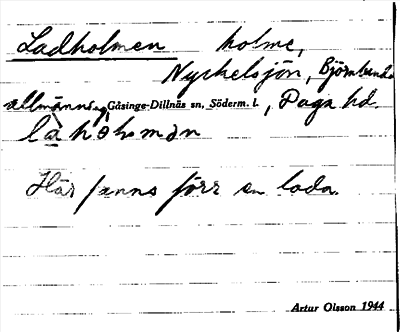 Ladholmen holme,
Nyckelsjön, Björnlunda
allmänning, Gåsinge-Dillnäs sn, Söderm. l., Daga hd.
laholmən
Här fanns förr en lada.
Artur Olsson 1944